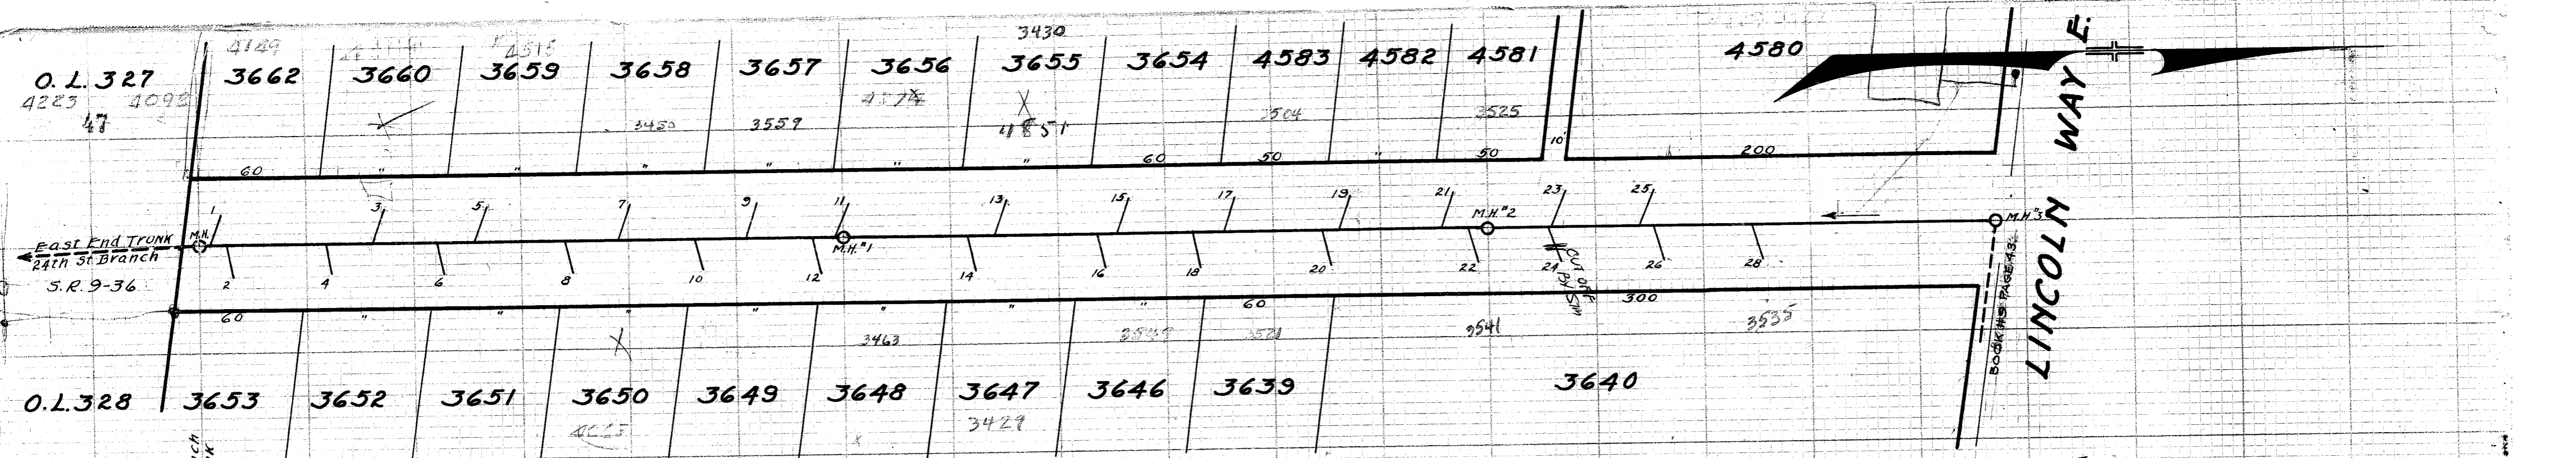 3430
4149 4515
O.L.327 3662 3660 3659 3658 3657 3656 3655 3654 4583 4582 4581 4580
4223 4093
47 3450 3559 X 4851 3504 3525
60 " " " " " " 60 50 " 50 10' 200
1 3 5 7 9 11 13 15 17 19 21 23 25
M.H. M.H.#2 M.H.#3
East End Trunk
24th St Branch
M.H.#1
S.R. 9-36
2 4 6 8 10 12 14 16 18 20 22 24 26 28
CUT OFF
BY SIM
60 " " " " " " " 60 300
X 3463 3521 3541 3535
O.L.328 3653 3652 3651 3650 3649 3648 3647 3646 3639 3640
x 3429
LINCOLN WAY E.